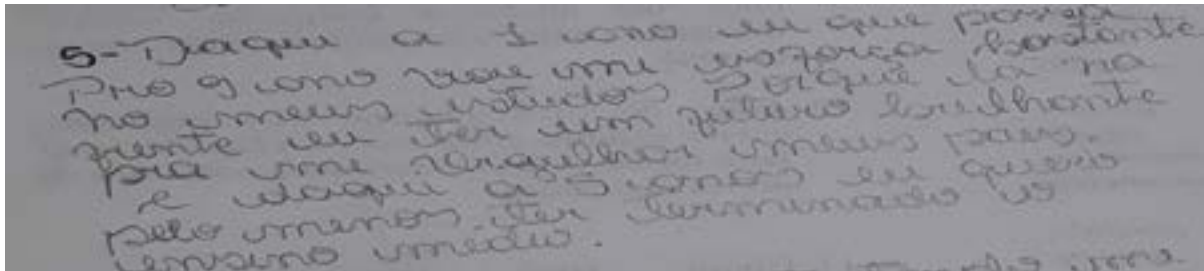 5-Daqui a 1 ano eu que passa
Pro 9 ano vou mi esforça bastante
no meus estudos Porque la na
frente eu ter um futuro brilhante
pra mi orgulhar meus pais.
e daqui a 5 anos eu quero
pelo menos ter terminado o
ensino medio.